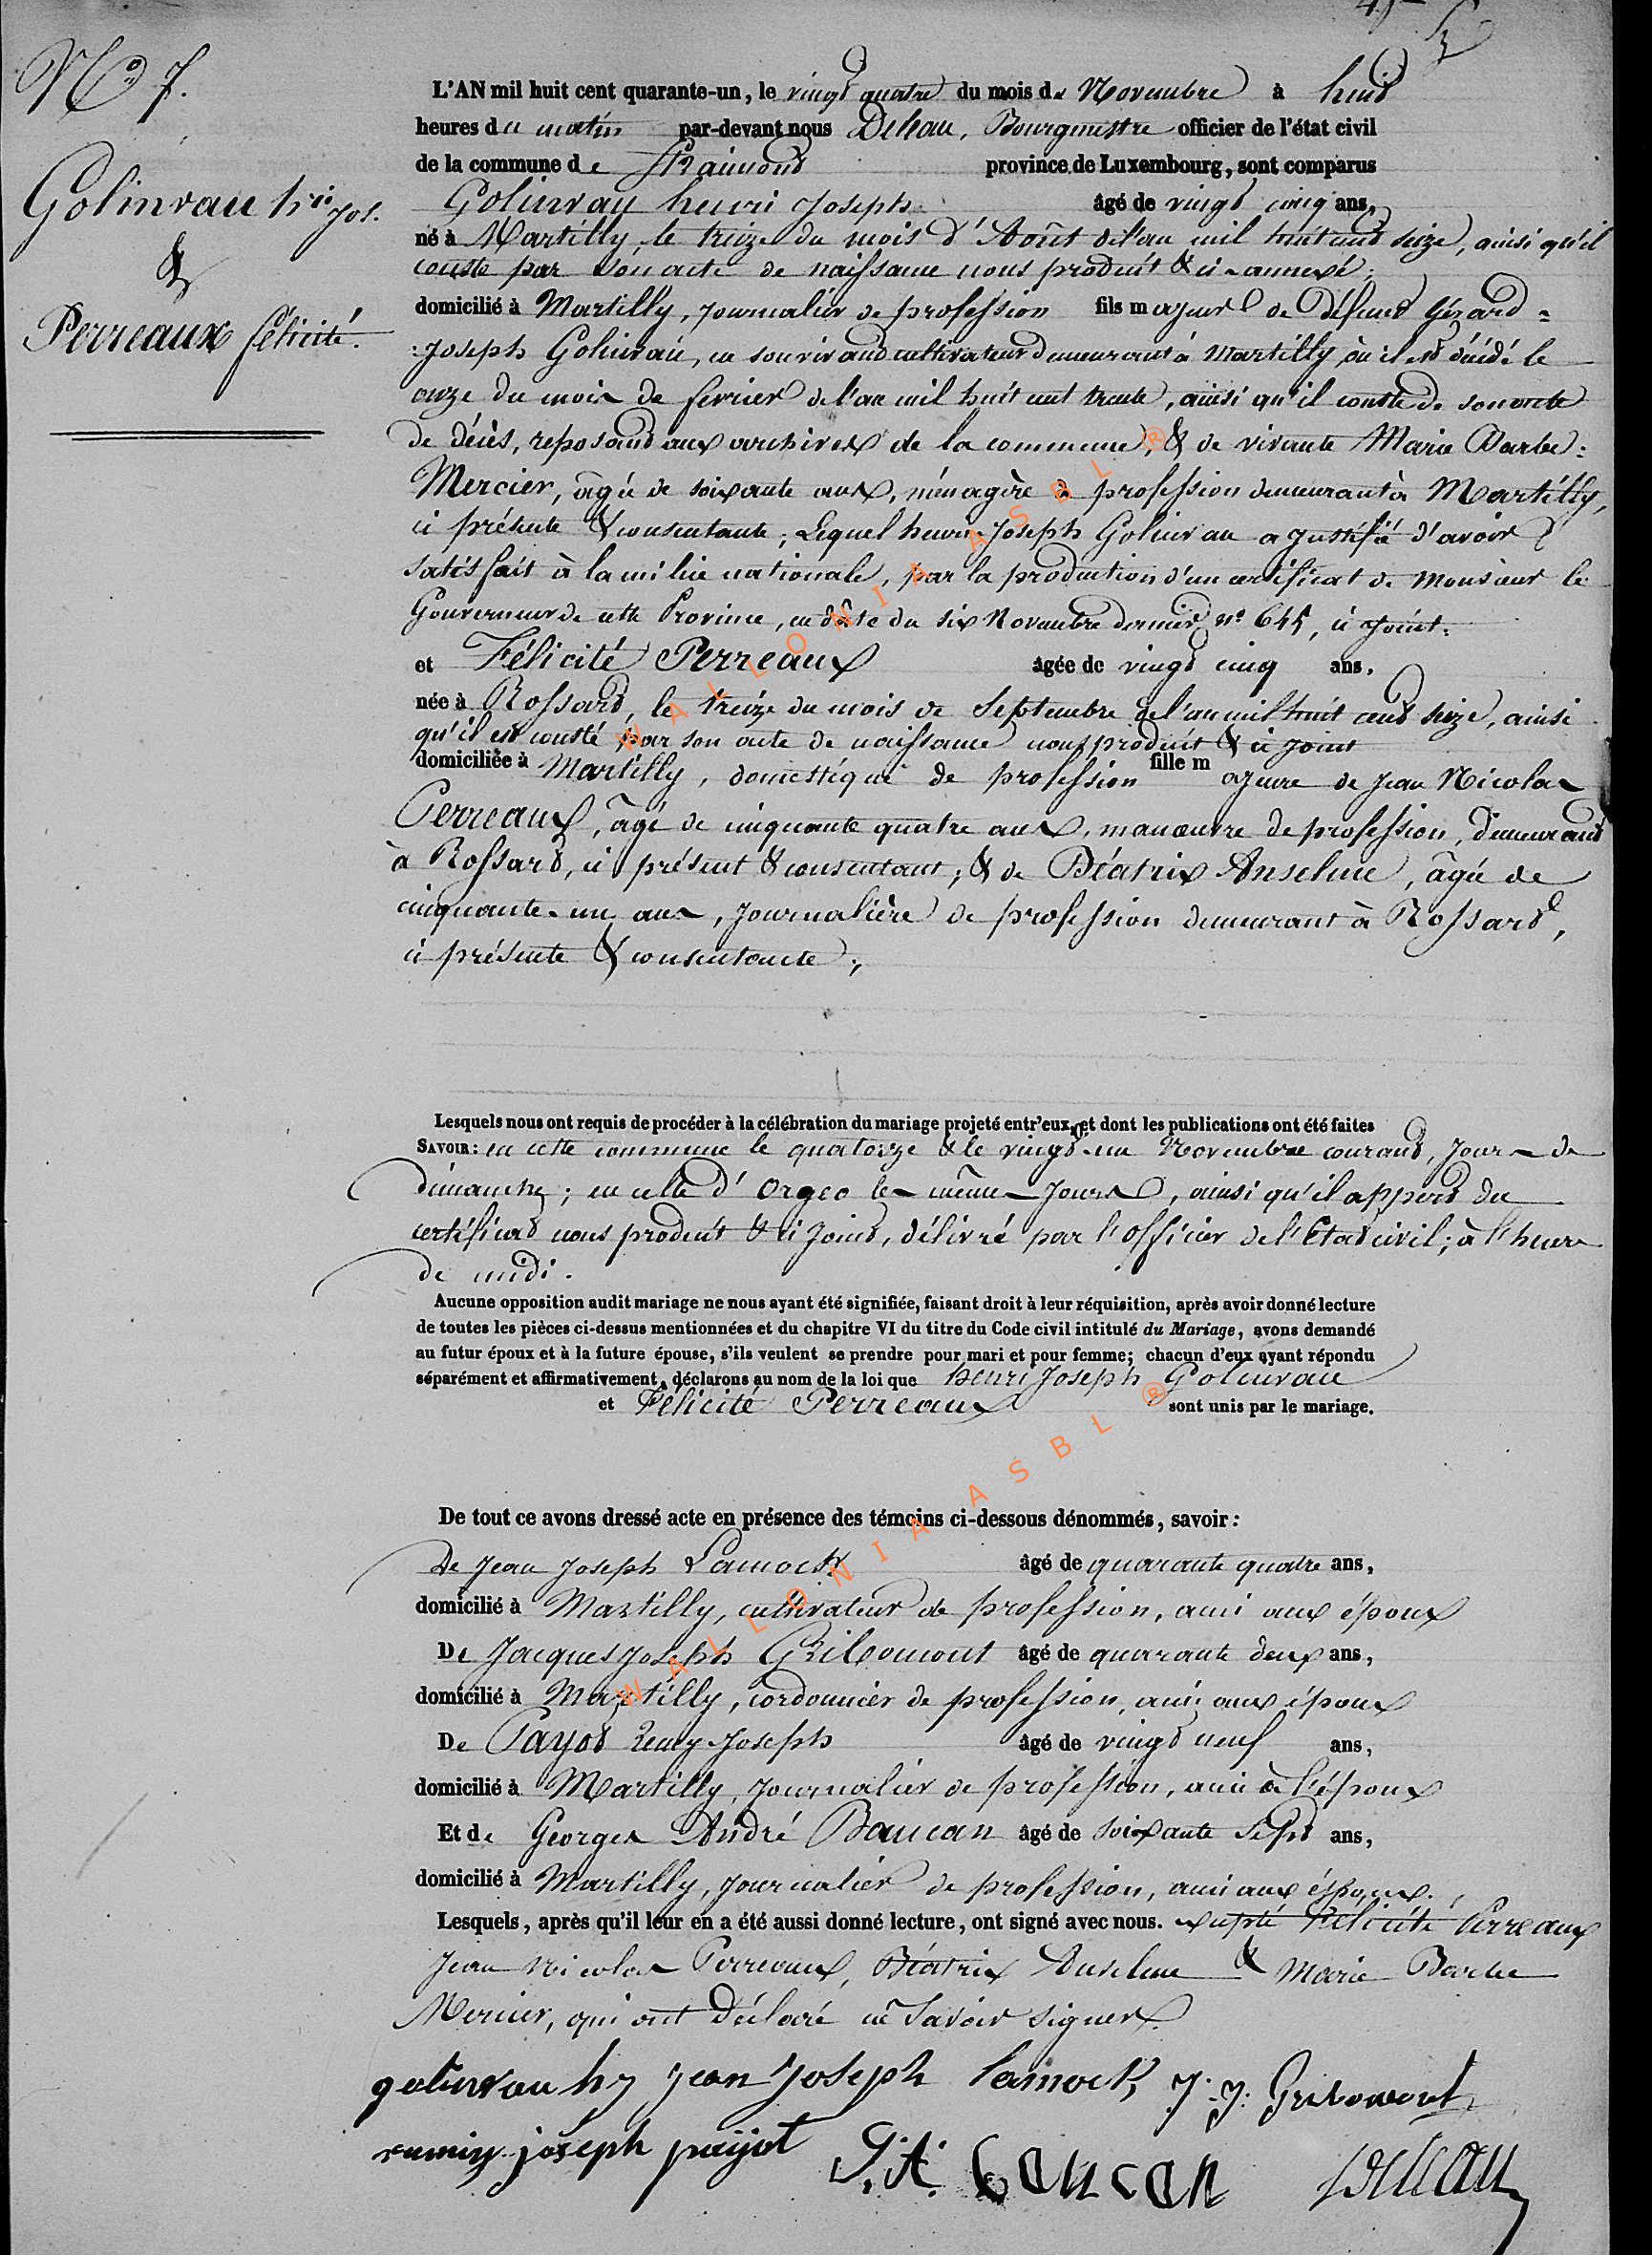 N° 7.
Golinvau hri Jos.
&
Perreaux félicité.
L'AN mil huit cent quarante-un, le vingt quatre du mois de Novembre à huit
heures du matin par-devant nous Dehau, Bourgmestre officier de l'état civil
de la commune de Straimont province de Luxembourg, sont comparus
Golinvau henri Joseph âgé de vingt cinq ans,
né à Martilly, le treize du mois d'Août de l'an mil huit cent seize, ainsi qu'il
conste par son acte de naissance nous produit & ci-annexé;
domicilié à Martilly, journalier de profession fils majeur de défunt Gérard =
:Joseph Golinvau, en son vivant cultivateur demeurant à Martilly, où il est décédé le
onze du mois de fevrier de l'an mil huit cent trente, ainsi qu'il conste de son acte
de décès, reposant aux archives de la commune, & de vivante Marie Barbe:
Mercier, âgée de soixante ans, ménagère de profession demeurant à Martilly,
ci présente & consentante; Lequel henri Joseph Golinvau a justifié d'avoir
satisfait à la milice nationale, par la production d'un certificat de Monsieur le
Gouverneur de cette Province, en date du six Novembre dernier n° 645, ci joint.
et Félicité Perreaux âgée de vingt cinq ans,
née à Rossart, le treize du mois de Septembre de l'an mil huit cent seize, ainsi
qu'il est consté par son acte de naissance nous produit & ci joint
domiciliée à Martilly, domestique de profession fille majeure de Jean Nicolas
Perreaux, âgé de cinquante quatre ans, manœuvre de profession, demeurant
à Rossart, ci présent & consentant; & de Béatrix Anselme, âgée de
cinquante-un ans, journalière de profession demeurant à Rossart,
ci présente & consentante;
Lesquels nous ont requis de procéder à la célébration du mariage projeté entr'eux, et dont les publications ont été faites
SAVOIR: en cette commune le quatorze & le vingt-un Novembre courant, jours de
dimanche; en celle d'Orgeo les mêmes jours, ainsi qu'il appert du
certificat nous produit & ci joint, délivré par l'officier de l'Etat civil; à l'heure
de midi.
Aucune opposition audit mariage ne nous ayant été signifiée, faisant droit à leur réquisition, après avoir donné lecture
de toutes les pièces ci-dessus mentionnées et du chapitre VI du titre du Code civil intitulé du Mariage, avons demandé
au futur époux et à la future épouse, s'ils veulent se prendre pour mari et pour femme; chacun d'eux ayant répondu
séparément et affirmativement, déclarons au nom de la loi que henri Joseph Golinvau
et Félicité Perreaux sont unis par le mariage.
De tout ce avons dressé acte en présence des témoins ci-dessous dénommés, savoir:
De Jean Joseph Lamock âgé de quarante quatre ans,
domicilié à Martilly, cultivateur de profession, ami aux époux
De Jacques Joseph Gribomont âgé de quarante deux ans,
domicilié à Martilly, cordonnier de profession, ami aux époux
De Payot Remy Joseph âgé de vingt neuf ans,
domicilié à Martilly, journalier de profession, ami à l'époux
Et de Georges André Baucan âgé de soixante sept ans,
domicilié à Martilly, journalier de profession, ami aux époux.
Lesquels, après qu'il leur en a été aussi donné lecture, ont signé avec nous. excepté Félicité Perreaux
Jean Nicolas Perreaux, Béatrix Anselme & Marie Barbe
Mercier, qui ont déclaré ne savoir signer.
golinvau hy jean joseph lamock J. J. Gribomont
remy joseph paijot G. A. bancan Dehau
WALLONIA ASBL ®
WALLONIA ASBL ®